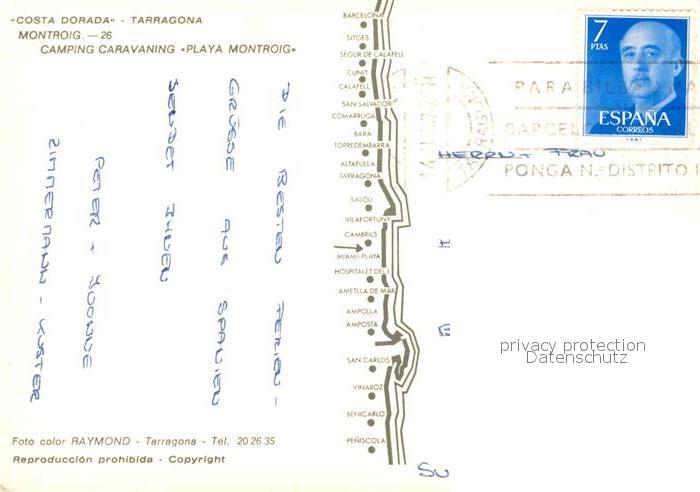 "COSTA DORADA" - TARRAGONA
MONTROIG. — 26
CAMPING CARAVANING «PLAYA MONTROIG»
DIE BESTEN FERIEN -
GRÜSSE AUS SPANIEN
SENDET IHNEN
PETER +
ZIMMERMANN - KUSTER
Foto color RAYMOND - Tarragona - Tel. 20 26 35
Reproducción prohibida - Copyright
BARCELONA
SITGES
SEGUR DE CALAFELL
CUNIT
CALAFELL
SAN SALVADOR
COMARRUGA
BARA
TORREDEMBARRA
ALTAFULLA
TARRAGONA
SALOU
VILAFORTUNY
CAMBRILS
MIAMI-PLAYA
HOSPITALET DEL I.
AMETLLA DE MAR
AMPOLLA
AMPOSTA
SAN CARLOS
VINAROZ
BENICARLO
PEÑISCOLA
7
PTAS
ESPAÑA
CORREOS
PARA
BARCEL
PONGA N.º DISTRITO
HERRN + FRAU
privacy protection
Datenschutz